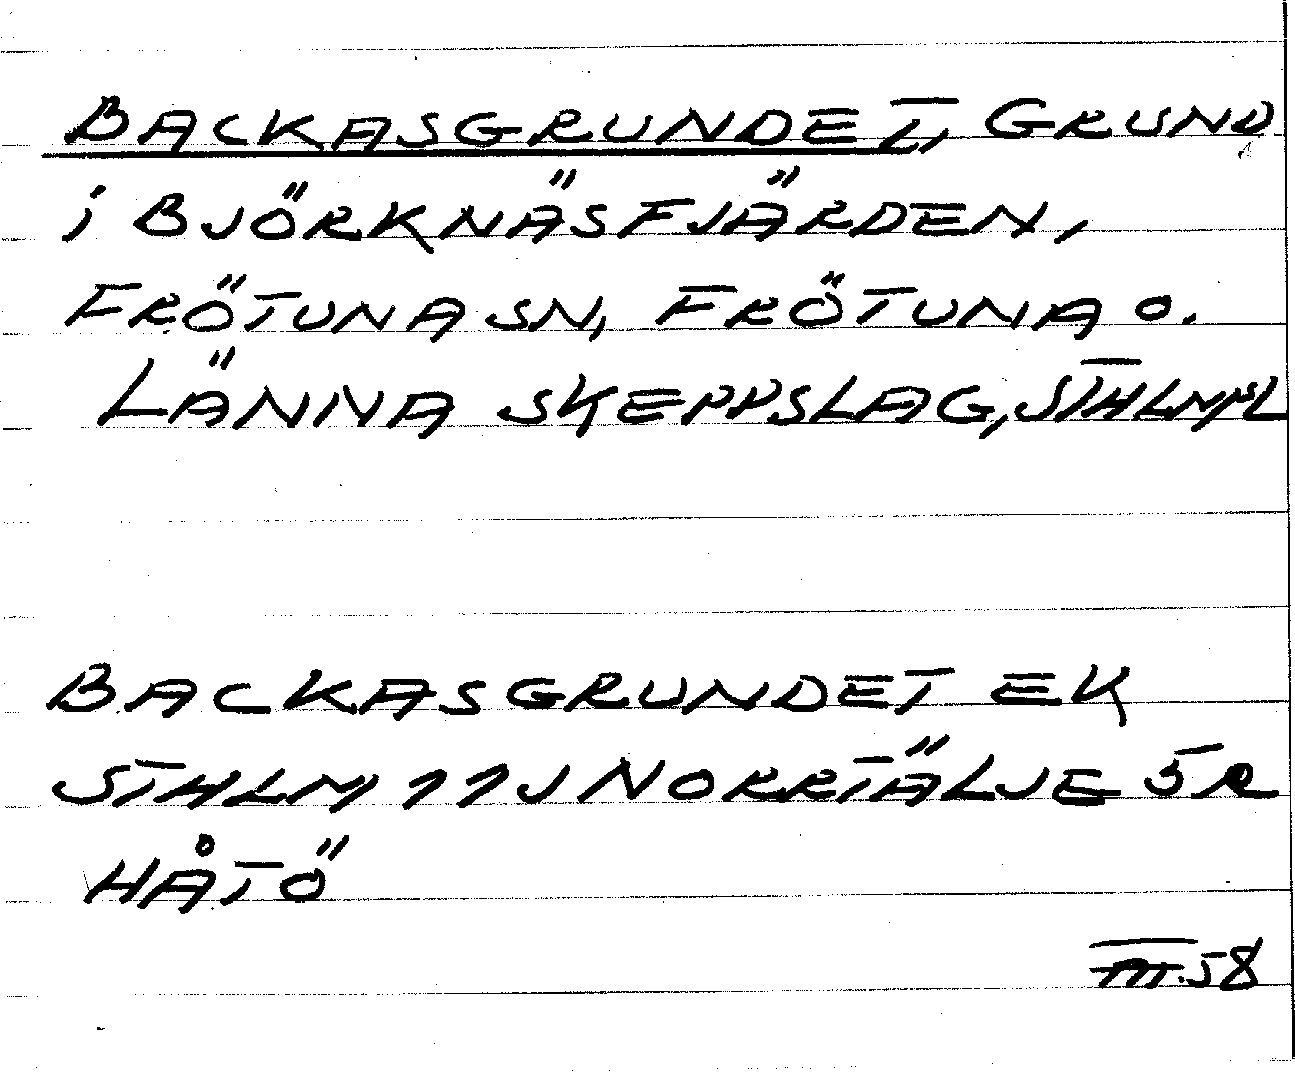 BACKASGRUNDET, GRUND
i BJÖRKNÄSFJÄRDEN,
FRÖTUNA SN, FRÖTUNA O.
LÄNNA SKEPPSLAG, STHLMSL
BACKASGRUNDET EK
STHLM 11J NORRTÄLJE SR
HÅTÖ
III.58